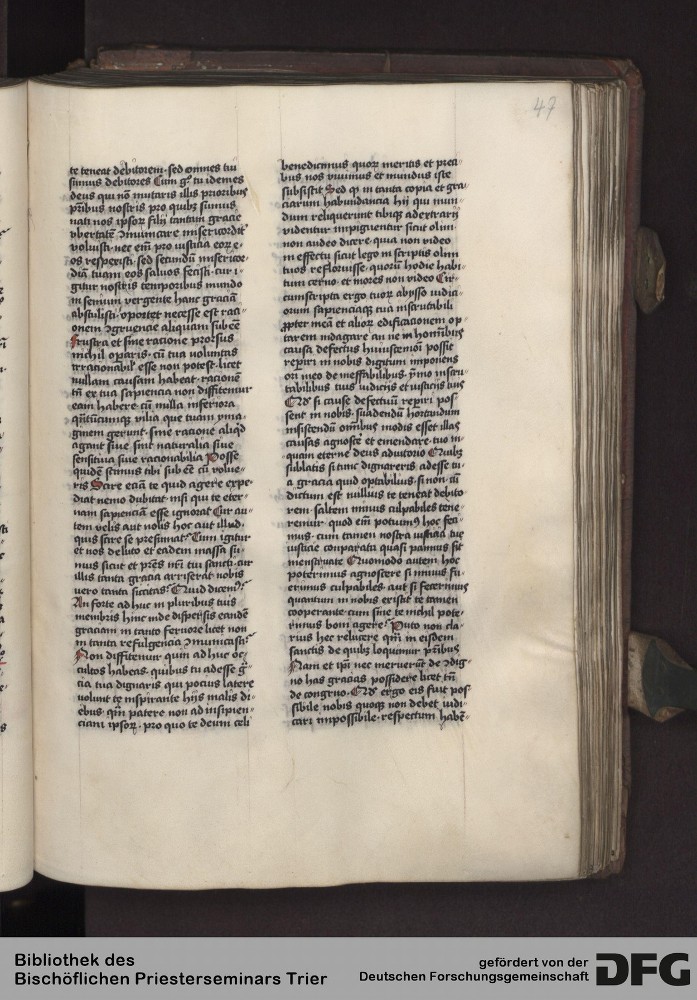 47
te teneat debitorem · sed omnes tui
simus debitores Cum gͦ tu idem es
deus qui nō mutaris illis prioribus
pribus nostris pro quibꝫ sumus
nati nos ipsoꝝ filij tantam gracie
vbertatē 
voluisti · nec em̄ pro iusticia eoꝝ e-
os respexisti · sed secundū misericor-
diā tuam eos saluos fecisti · cur i-
gitur nostris temporibus mundo
in senium vergente hanc graciā
abstulisti · oportet necesse est raci-
onem ꝯgruencie aliquam subē̄e
Frustra et sine racione prorsus
nichil operaris · cū tua voluntas
irracionabil' esse non potest · licet
nullam causam habeat · racionē
tn̄ ex tua sapiencia non diffitemur
eam habere · cū nulla inferiora
qn̄tūcumqꝫ vilia que tuam yma-
ginem gerunt · sine racione aliqd
agant siue sint naturalia siue
sensitiua siue racionabilia Posse
quidē scimus tibi sub ē̄e cū volue-
ris Scire eciā te quid agere expe-
diat nemo dubitat · nisi qui te eter-
nam sapienciā esse ignorat Cur au-
tem velis aut nolis hoc aut illud ·
quis scire se presumat · Cum igitur
et nos de luto et eadem massa su-
mus sicut et prēs nr̄i tui sancti · cur
illis tanta gracia arriserat nobis
vero tanta siccitas · Quid dicem⁹
An forte ad huc in pluribus tuis
membris hinc inde dispersis eandē
graciam in tanto feruore licet non
in tanta refulgencia ꝯmunicasti ·
Non diffitemur quin ad huc oc-
cultos habeas · quibus tu adesse g̃-
cia tua dignaris qui pocius latere
volunt te inspirante hijs malis di-
ebus · qm̄ patere non ad insipien-
ciam ipsoꝝ · pro quo te deum celi
benedicimus quoꝝ meritis et preci-
bus nos viuimus et mundus iste
subsistit Sed q in tanta copia et gra-
ciarum habundancia hij qui mun-
dum reliquerunt tibiqꝫ 
videntur impinguentur sicut olim
non audeo dicere · quia non video
in effectu sicut lego in scriptis olim
tuos refloruisse · quorū hodie habi-
tum cerno · et mores non video Cir-
cumscripta ergo tuoꝝ abysso iudici-
orum sapienciaqꝫ tua inscrutabili
ꝓpter meā et alioꝝ edificacionem op-
tarem indagare an ne in hominibus
causa defectus huiusmodi possit
repiri in nobis digitum imponens
ori meo de ineffabilibus · ymmo inscru-
tabilibus tuis iudicijs et iusticijs tuis
Qd' si cause defectuū repiri pos-
sent in nobis · suadendū hortandum
insistendū omnibus modis esset illas
causas agnosce et emendare · tuo in-
quam eterne deus adiutorio Quibꝫ
sublatis si tunc dignareris adesse tu-
a gracia quid optabilius · si non cū
dictum est nullius te teneat debito-
rem · saltem minus culpabiles tene-
remur · quod em̄ potuim⁹ hoc feci-
mus · cum tamen nostra iusticia tue
iusticie comparata quasi pannus sit
menstruate Quomodo autem hoc
poterimus agnoscere si minus fu-
erimus culpabiles · aut si fecerimus
quantum in nobis existit te tamen
cooperante · cum sine te nichil pote-
rimus boni agere · Puto non cla-
rius hec relucere qm̄ in eisdem
sanctis de quibꝫ loquimur pribus
Nam et ipi nec meruerūt de ꝯdig-
no has gracias possidere licet tn̄
de congruo · Qd' ergo eis fuit pos-
sibile nobis quoqꝫ non debet iudi-
cari impossibile · respectum haben-
Bibliothek des
Bischöflichen Priesterseminars Trier
gefördert von der
Deutschen Forschungsgemeinschaft
DFG